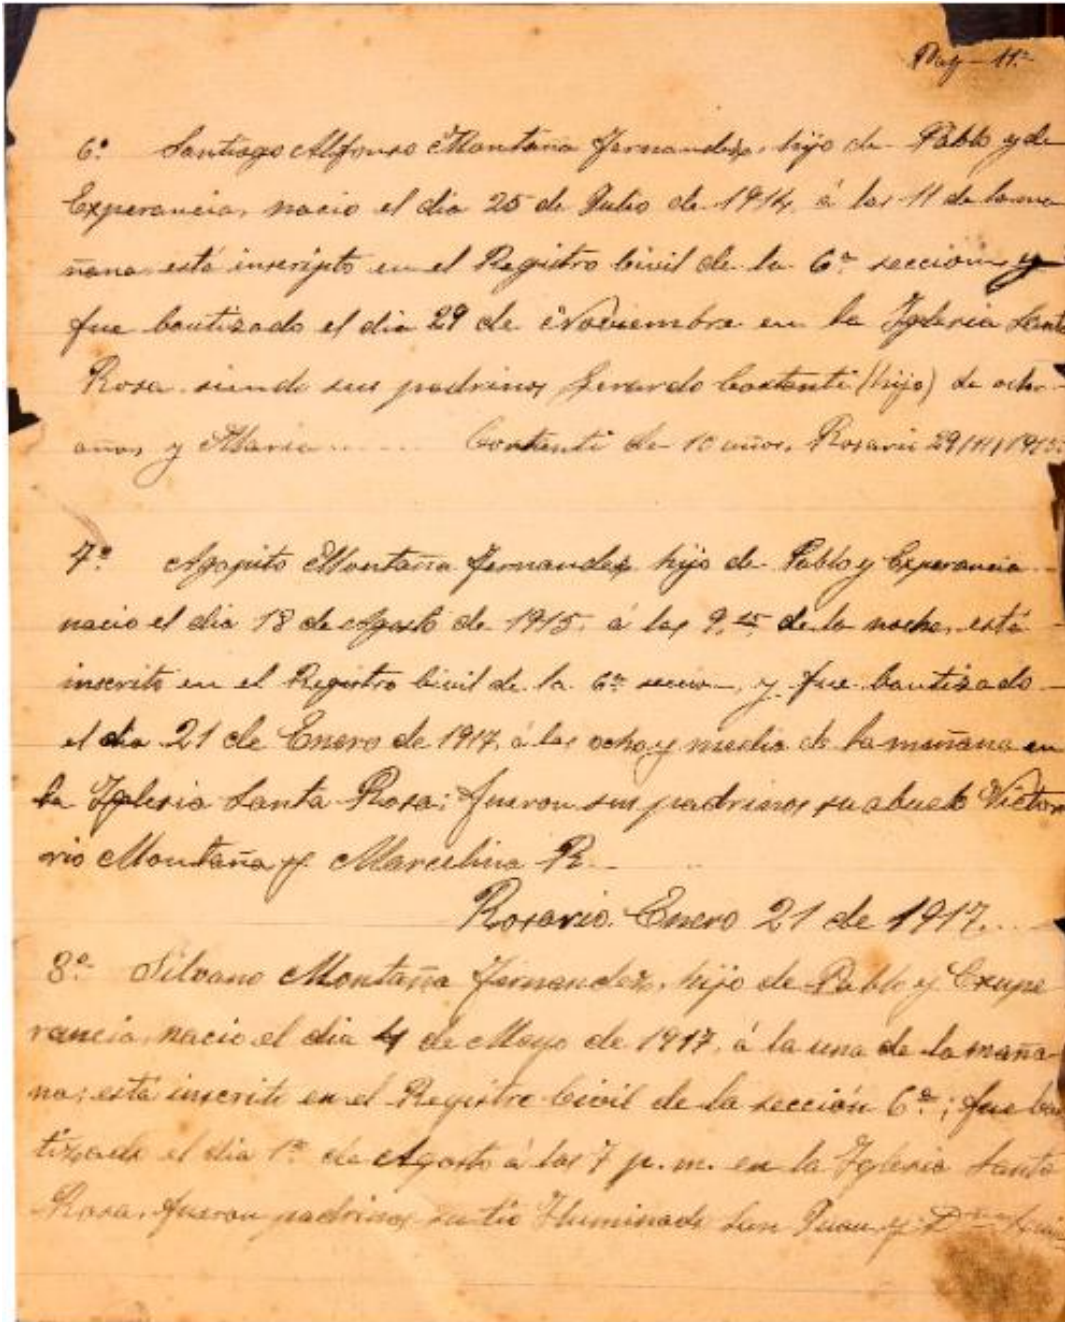 Pag - 11ª
6º Santiago Alfonso Montaña Fernandez, hijo de Pablo y de
Experancia, nacio el dia 25 de Julio de 1914, á las 11 de la ma
ñana está inscripto en el Registro Civil de la 6ª seccion y
fue bautizado el dia 29 de Noviembre en la Iglesia Santa
Rosa siendo sus padrinos Gerardo (hijo) de ocho
años y Maria ........ de 10 años, Rosario
7º Agapito Montaña Fernandez hijo de Pablo y Experancia
nacio el dia 18 de Agosto de 1915, á las 9.15 de la noche, está
inscrito en el Registro Civil de la 6ª y fue bautizado
el dia 21 de Enero de 1917, á las ocho y media de la mañana en
la Iglesia Santa Rosa; fueron sus padrinos su abuelo Victo
rio Montaña y Marcelina R.
Rosario. Enero 21 de 1917.
8º Silvano Montaña Fernandez, hijo de Pablo y Exupe
rancia, nacio el dia 4 de Mayo de 1917, á la una de la maña
na; está inscrito en el Registro Civil de la sección 6ª; fue bau
tizado el dia 1º de Agosto á las 7 p.m. en la Iglesia Santa
Rosa, fueron padrinos su tio Iluminado San Juan, y